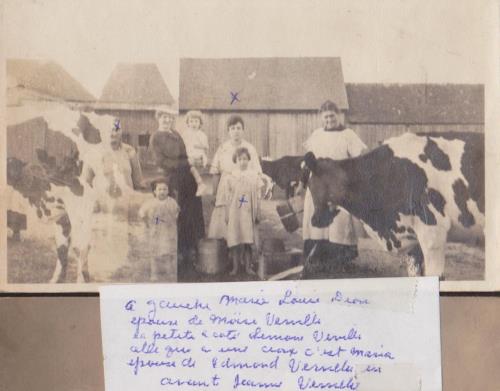 a gauche Marie Louise Dion
épouse de Moïse Verville
la petite a coté Simone Verville
celle qui a une croix c'est Maria
épouse de Edmond Verville en
avant Jeanne Verville